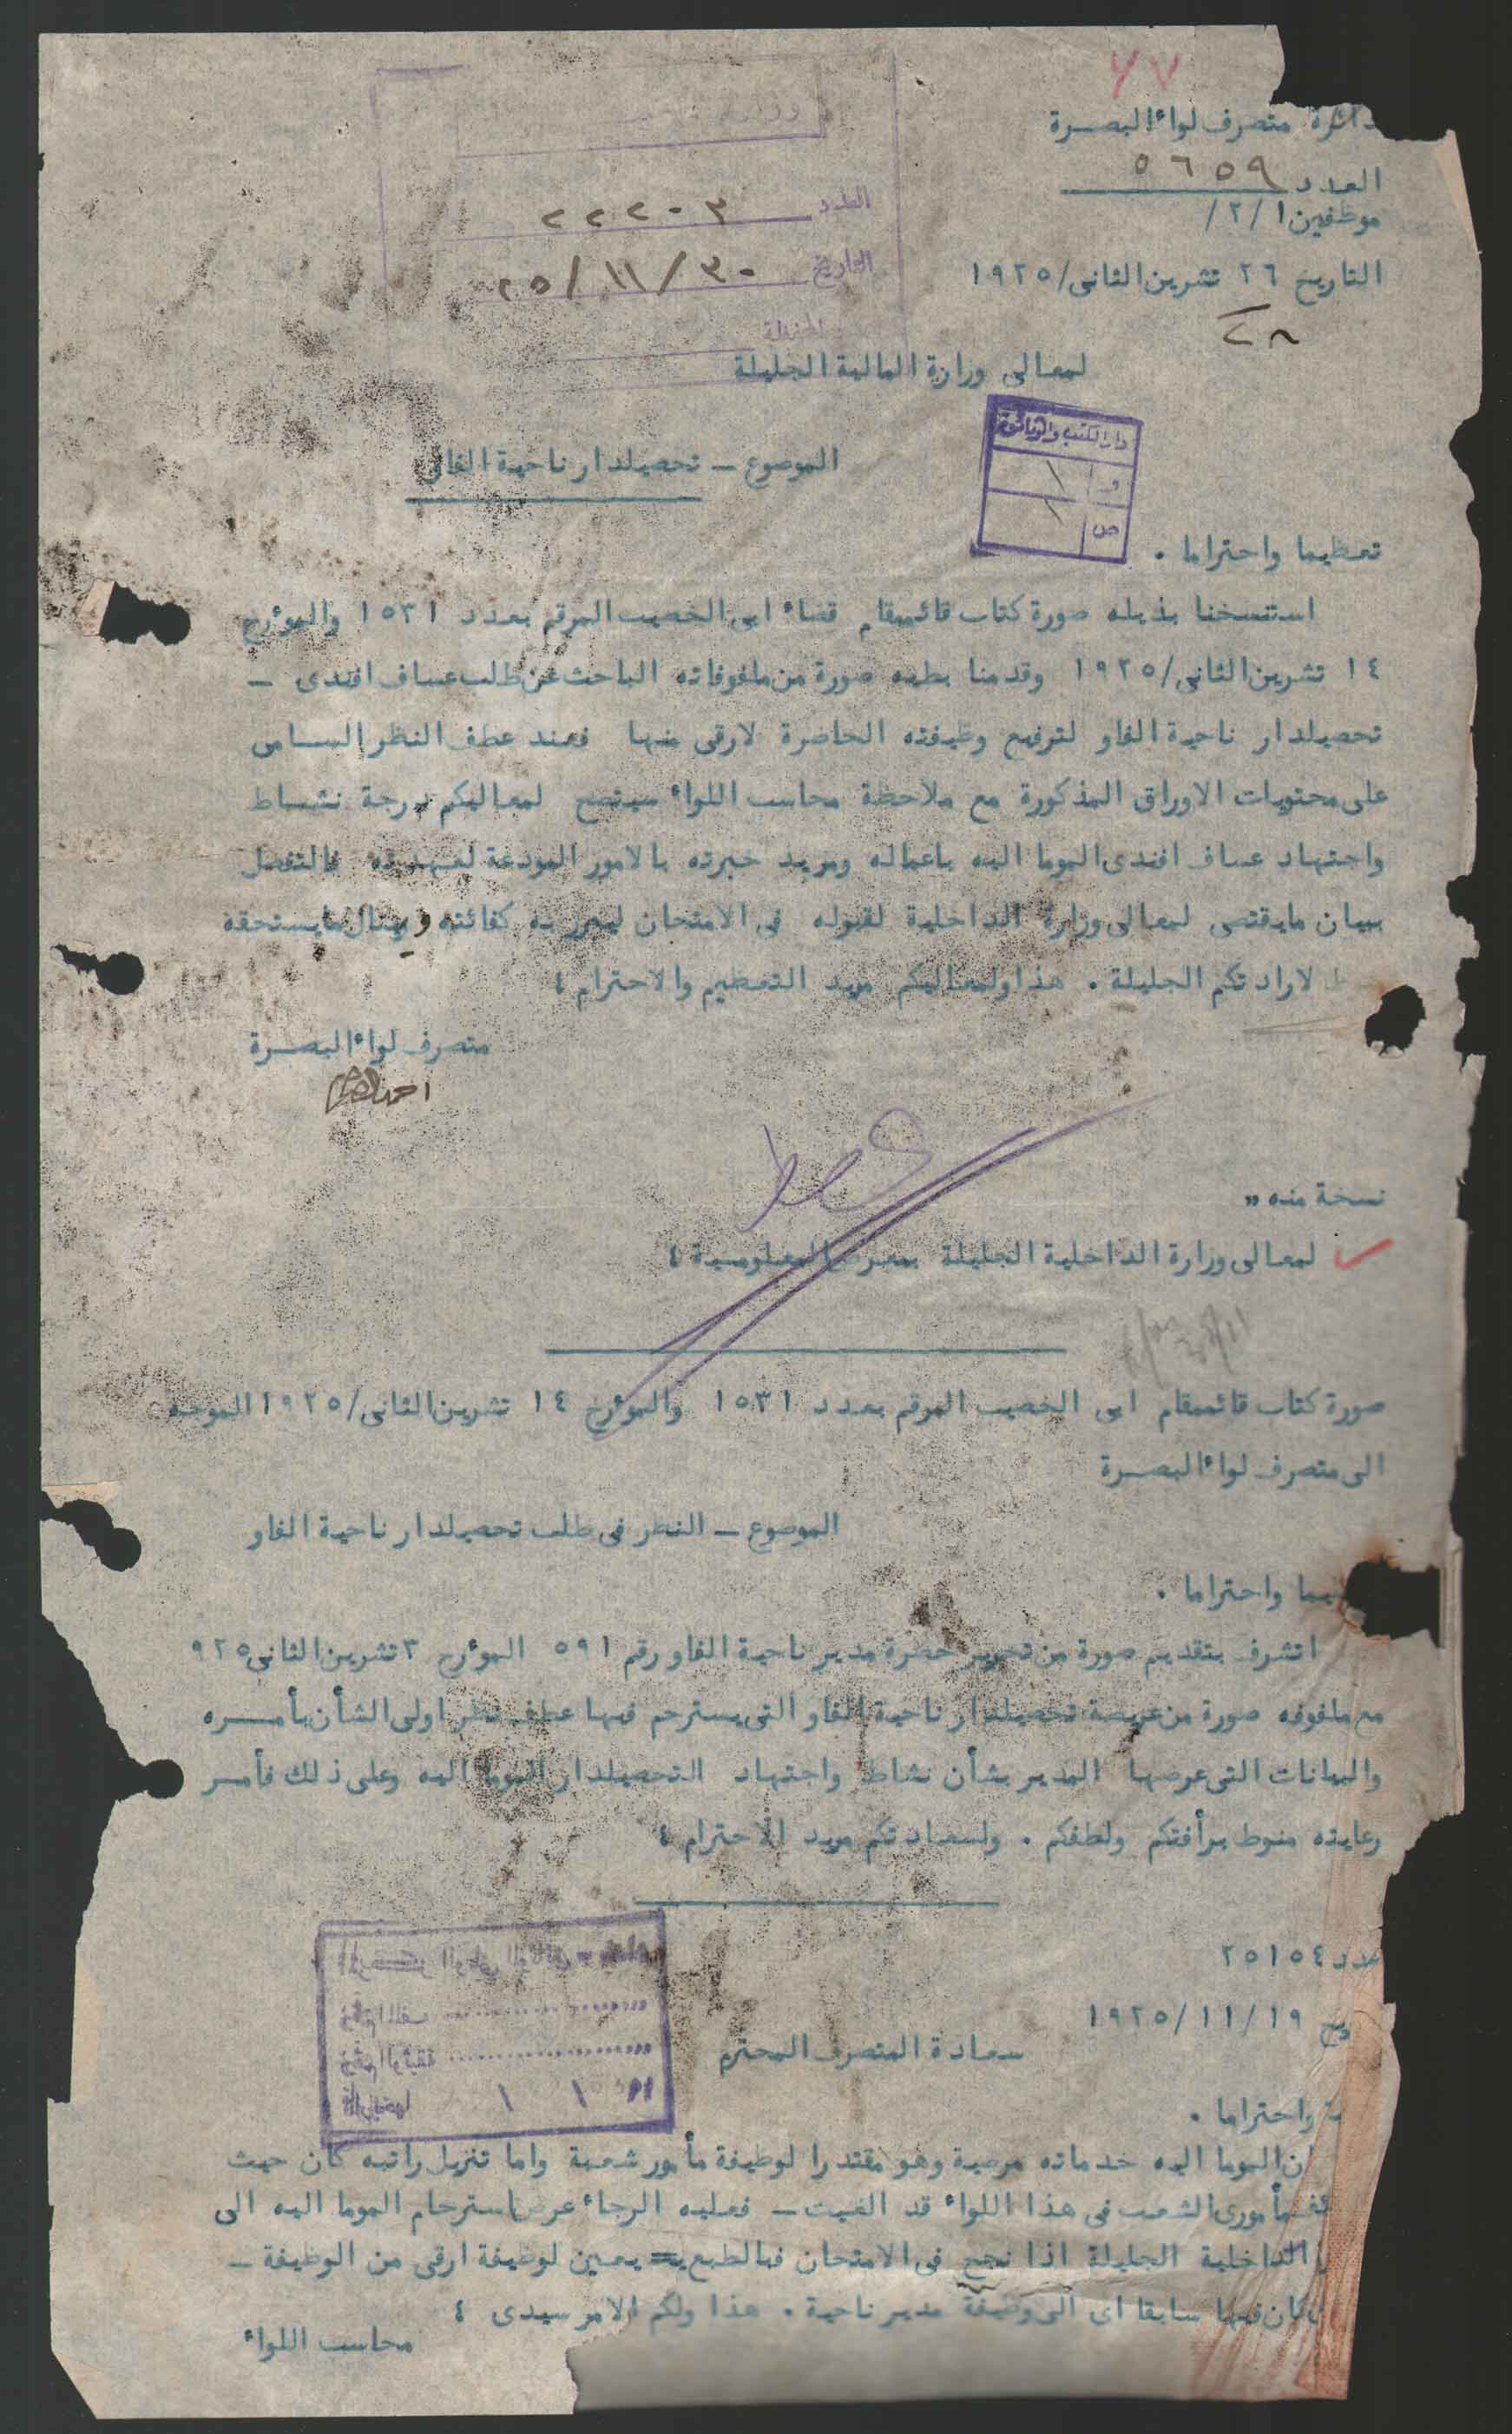 ٦٧
دائرة متصرف لواء البصرة
العدد ٥٦٥٩
موظفين ٢/١/
التاريخ ٢٦ تشرين الثانى/١٩٢٥
٢٨
العدد ٢٢٢٠٣
التاريخ ٣٠/١١/٢٥
لمعالى وزارة المالية الجليلة
دار الكتب والوثائق
و ١
ص ١
الموضوع ــ تحصيلدار ناحية الفاو
تعظيما واحتراما .
استنسخنا بذيله صورة كتاب قائممقام قضاء ابى الخصيب المرقم بعدد ١٥٣١ والمؤرخ
١٤ تشرين الثانى/١٩٢٥ وقدمنا بطيه صورة من ملفوفاته الباحث عن طلب عساف افندى ــ
تحصيلدار ناحية الفاو لترفيع وظيفته الحاضرة لارقى منها فعند عطف النظر السامى
على محتويات الاوراق المذكورة مع ملاحظة محاسب اللواء سيتضح لمعاليكم درجة نشاط
واجتهاد عساف افندى الموما اليه باعماله ومزيد خبرته بالامور المودعة لعهدته فالتفضل
ببيان مايقتضى لمعالى وزارة الداخلية لقبوله فى الامتحان ليبرز به كفائته وينال مايستحقه
لارادتكم الجليلة . هذا ولمعاليكم مزيد التعظيم والاحترام ؛
متصرف لواء البصرة
احمد
نسخة منه "
لمعالى وزارة الداخلية الجليلة بمعرض المعلومية ؛
صورة كتاب قائممقام ابى الخصيب المرقم بعدد ١٥٣١ والمؤرخ ١٤ تشرين الثانى/١٩٢٥ الموجه
الى متصرف لواء البصرة
الموضوع ــ النظر فى طلب تحصيلدار ناحية الفاو
يما واحتراما .
اتشرف بتقديم صورة من تحرير حضرة مدير ناحية الفاو رقم ٥٩١ المؤرخ ٣ تشرين الثانى ٩٢٥
مع ملفوفه صورة من عريضة تحصيلدار ناحية الفاو التى يسترحم فيها عطف نظر اولى الشأن بأمره
والبيانات التى عرضها المدير بشأن نشاط واجتهاد التحصيلدار الموما اليه وعلى ذلك فأمر
رعايته منوط برأفتكم ولطفكم . ولسعادتكم مزيد الاحترام ؛
عدد ٢٥١٥٤
يخ ١٩/١١/١٩٢٥
سعادة المتصرف المحترم
واحتراما .
المركز الوطني للوثائق
رقم الملف
رقم الوثيقة
تاريخها / / ١٩
ن الموما اليه خدماته مرضية وهو مقتدرا لوظيفة مأمور شعبة واما تنزيل راتبه كان حيث
ئف مأمورى الشعب فى هذا اللواء قد الغيت ــ فعليه الرجاء عرض استرحام الموما اليه الى
الداخلية الجليلة اذا نجح فى الامتحان فبالطبع يعين لوظيفة ارقى من الوظيفة ــ
كان فيها سابقا اى الى وظيفة مدير ناحية . هذا ولكم الامر سيدى ؛
محاسب اللواء